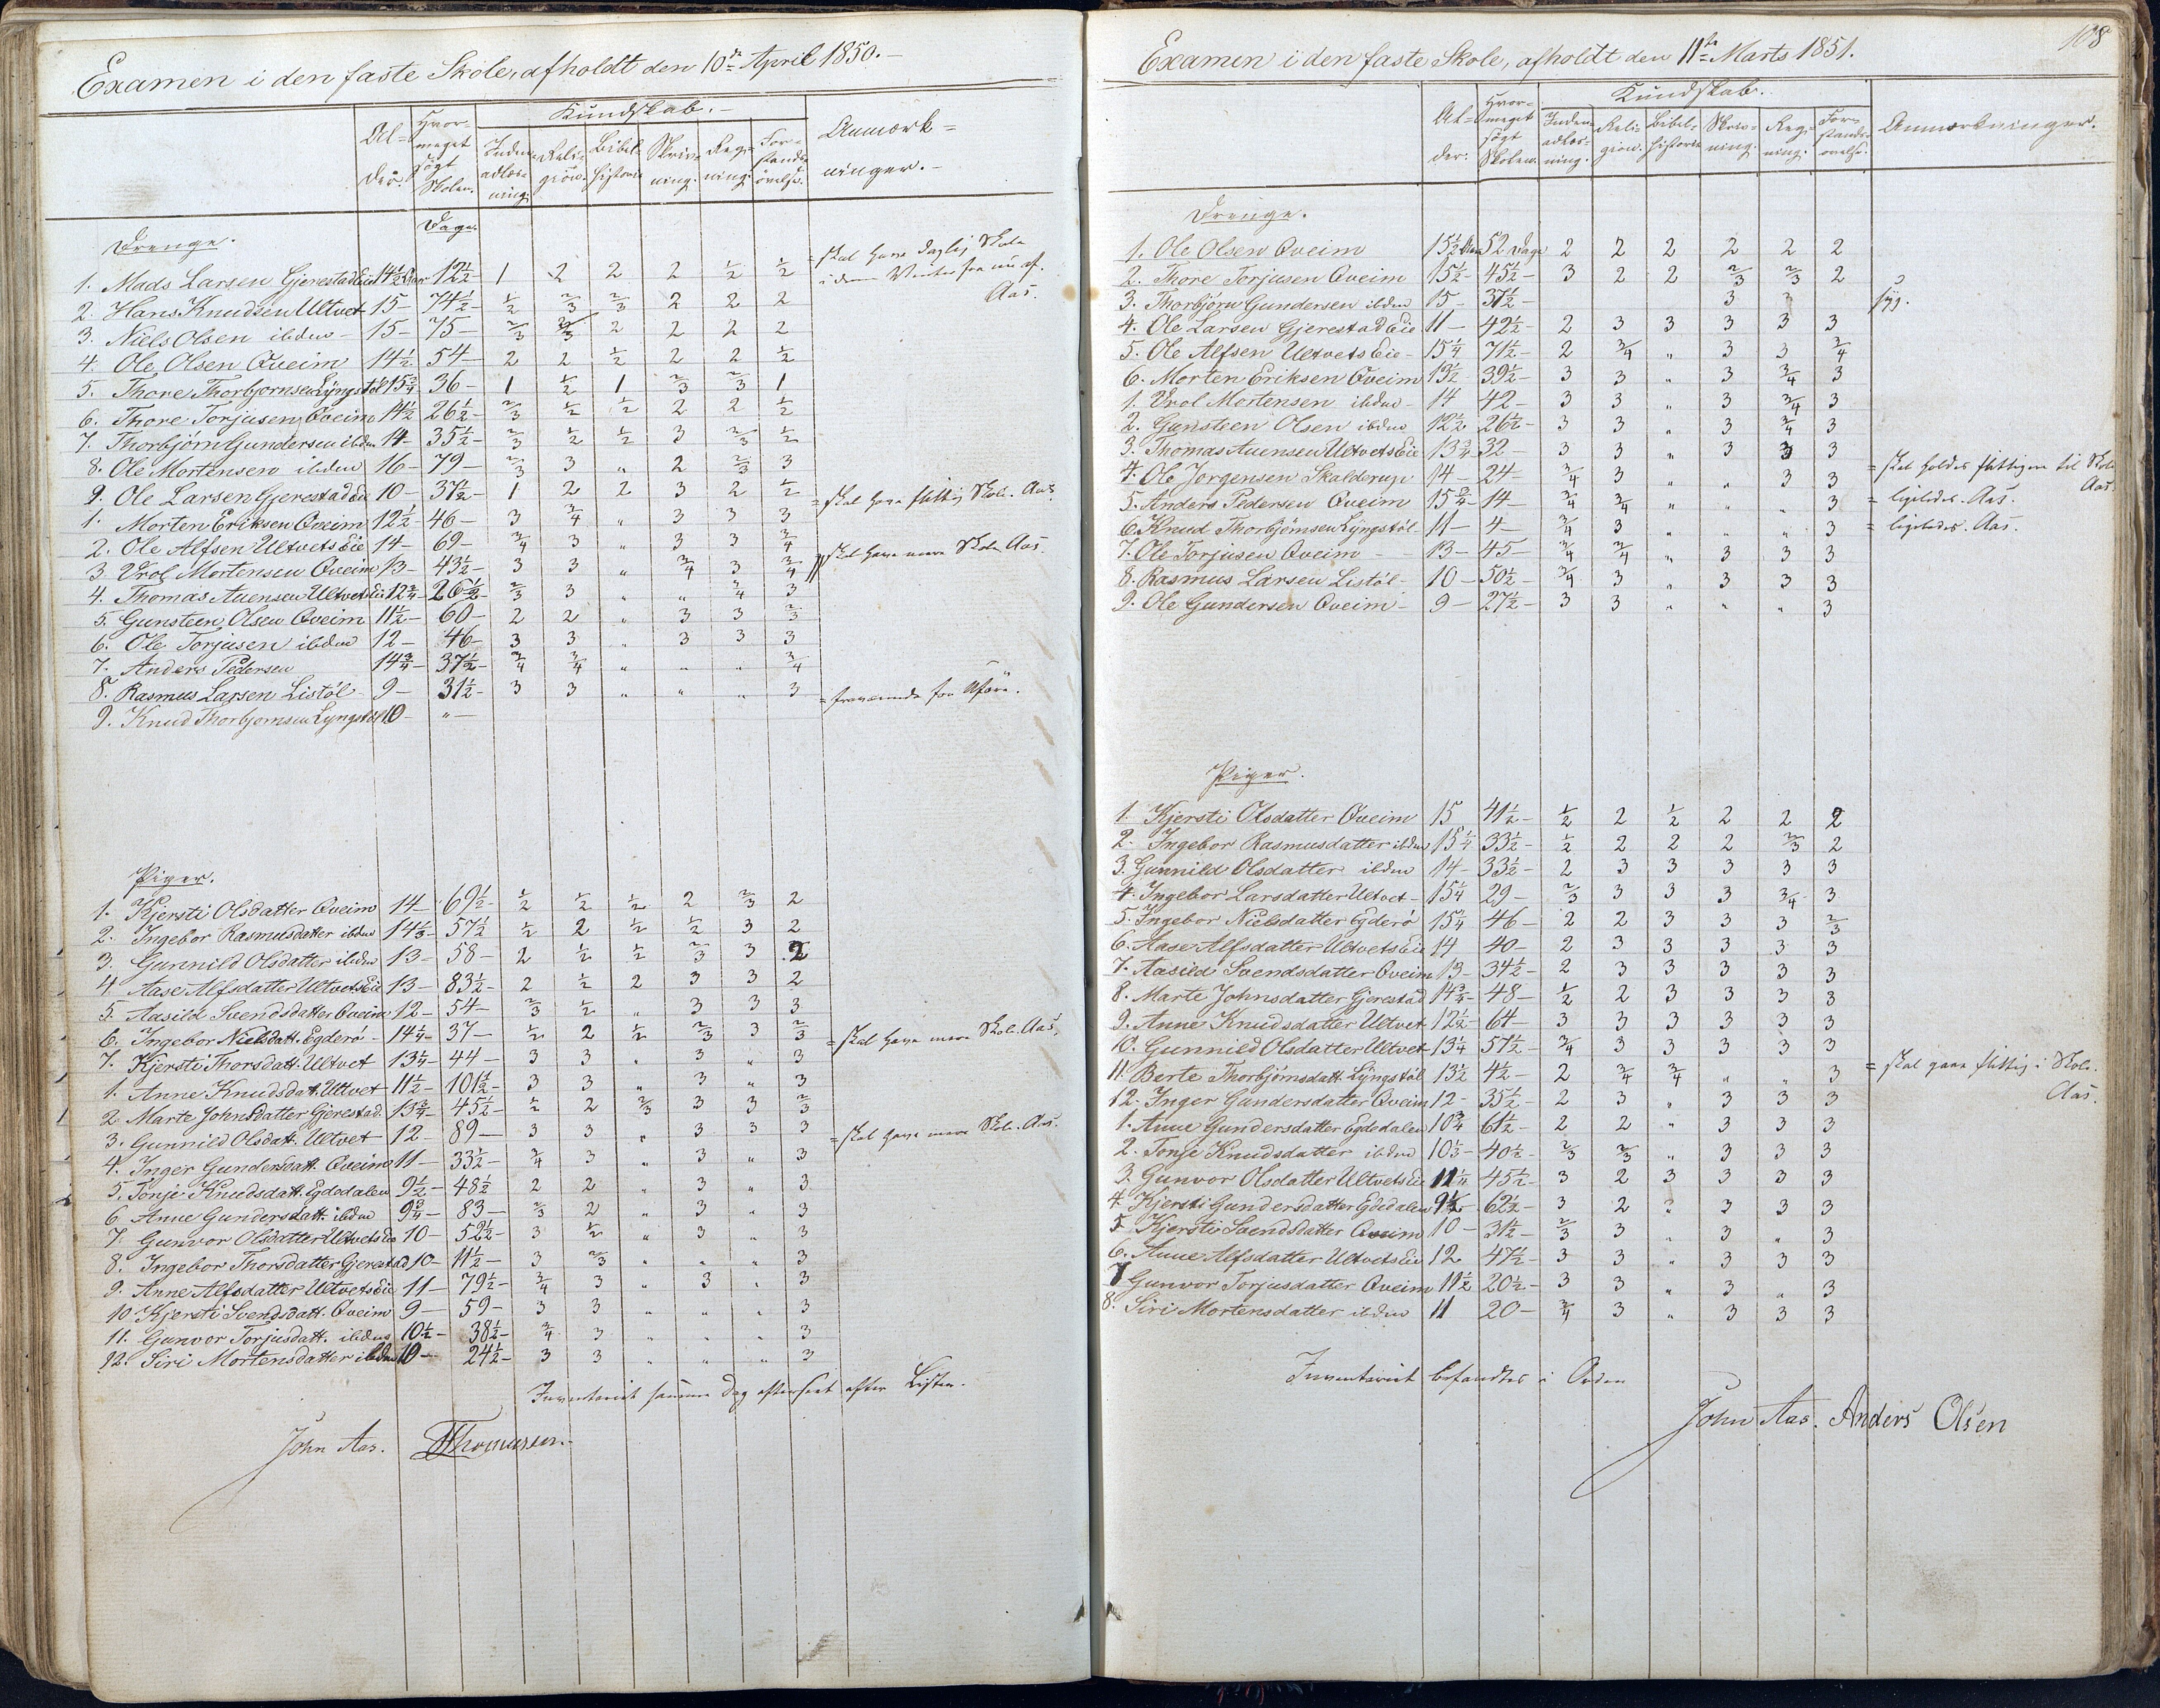 Examen i den faste Skole, afholdt den 10de April 1850.-
Al-der. Hvor-meget søgt Skolen. Kundskab.- Anmærk-ninger.-
Inden-adlæs-ning. Reli-gion. Bibel-historie Skriv-ning. Reg-ning. For-stands-øvelse.
Dage.
Drenge.
1. Mads Larsen Gjerestad Eie 14½ Aar 12½- 1 2 2 2 ½ ½ = skal have daglig Skole
i den Vinter fra nu af.
Aas.
2. Hans Knudsen Ultvet 15- 74½- ½ 2/3 2/3 2 2 2
3. Niels Olsen ibden- 15- 75- 2/3 2/3 2 2 2 2
4. Ole Olsen Qveim 14½ 54- 2 2 ½ 2 2 ½
5. Thore Thorbjornsen Lyngstøl 15¾ 36- 1 ½ 1 2/3 2/3 1
6. Thore Torjusen Qveim 14½ 26½- 2/3 ½ ½ 2 2 ½
7. Thorbjörn Gundersen ibden 14- 35½- 2/3 ½ ½ 3 2/3 ½
8. Ole Mortensen ibden 16- 79- 2/3 3 " 2 2/3 3
9. Ole Larsen Gjerestad Eie 10- 37½- 1 2 2 3 2 ½ = skal have flittig Skole. Aas.
1. Morten Eriksen Qveim 12½ 46- 3 ¾ " 3 3 3
2. Ole Alfsen Ultvets Eie 14- 69- ¾ 3 " 3 3 ¾
3 Vrol Mortensen Qveim 13- 43½- 3 3 " ¾ 3 ¾ skal have mere Skole Aas.
4. Thomas Auensen Ultvets Eie 12¾- 26½- 2/3 3 " " ¾ 3
5. Gunsteen Olsen Qveim 11½- 60- 2 2 " 3 3 2/3
6. Ole Torjusen ibden 12- 46- 3 3 " 3 3 3
7. Anders Pedersen 14¾- 37½- ¾ ¾ " " " ¾
8. Rasmus Larsen Listöl 9- 31½- 3 3 " " " 3
9. Knud Thorbjornsen Lyngstøl 10- "- = fraværende for Uføre.
Piger.
1. Kjersti Olsdatter Qveim 14- 69½- ½ ½ ½ 2 2/3 2
2. Ingebor Rasmusdatter ibden 14⅓- 57½ ½ 2 ½ ½ 3 2
3. Gunnild Olsdatter ibden 13- 58- 2 ½ ½ 2/3 3 2
4. Aase Alfsdatter Ultvets Eie 13- 83½- 2 ½ 2 3 3 2
5. Aasild Svendsdatter Qveim 12- 54- 2/3 ½ " 3 3 3
6. Ingebor Nielsdatt. Egderö- 14¼- 37- ½ 2 ½ 2/3 3 2/3 = skal have mere Skole. Aas.
7. Kjersti Thorsdatt. Ultvet 13¼- 44- 3 3 " 3 " 3
1. Anne Knudsdatt. Ultvet 11½- 101½- 3 3 " 3 " 3
2. Marte Johnsdatter Gjerestad. 13¾- 45½- ½ 2 2/3 3 3 2/3
3. Gunnild Olsdatt. Ultvet 12- 89- 3 3 " 3 3 3 = skal have mere Skole. Aas.
4. Inger Gundersdatt. Qveim 11- 33½- ¾ 3 " 3 " 3
5. Tonje Knudsdatt. Egdedalen 9½- 48½ 2 2 " 3 " 3
6. Anne Gundersdatt. ibden 9¾- 83- 2/3 2 " 3 " 3
7. Gunvor Olsdatter Ultvets Eie 10- 52½- 3 ½ " 3 " 3
8. Ingebor Thorsdatter Gjerestad 10- 11½- 3 2/3 " " " 3
9. Anne Alfsdatter Ultvets Eie 11- 79½- ¾ 3 " 3 " 3
10 Kjersti Svendsdatt. Qveim 9- 59- 3 3 " " " 3
11. Gunvor Torjusdatt. ibden 10½- 38½- ¾ 3 " " " 3
12. Siri Mortensdatter ibden 10- 24½- 3 3 " " " 3
Inventariet samme Dag efterseet efter Listen.
John Aas. Thomassen.
108
Examen i den faste Skole, afholdt den 11te Marts 1851.
Al-der. Hvor-meget søgt Skolen. Kundskab. Anmærkninger.
Inden-adlæs-ning. Reli-gion. Bibel-historie Skriv-ning. Reg-ning. For-stands-øvelse.
Drenge.
1. Ole Olsen Qveim 15½ Aar 52 Dage 2 2 2 2 2 2
2. Thore Torjusen Qveim 15½- 45½- 3 2 2 2/3 2/3 2
3. Thorbjörn Gundersen ibden 15- 37½- 3 3 syg.
4. Ole Larsen Gjerestad Eie 11- 42½- 2 3 3 3 3 3
5. Ole Alfsen Ultvets Eie- 15¼ 71½- 2 ¾ " 3 3 ¾
6. Morten Eriksen Qveim 13½- 39½- 3 3 " 3 ¾ 3
1. Vrol Mortensen ibden- 14 42- 3 3 " 3 ¾ 3
2. Gunsteen Olsen ibden 12½ 26½- 3 3 " 3 ¾ 3
3. Thomas Auensen Ultvets Eie 13¾ 32- 3 3 " 3 3 3
4. Ole Jörgensen Skalderup 14- 24- ¾ 3 " " 3 3 = skal holdes flittigere til Skole
Aas.
5. Anders Pedersen Qveim 15¾- 14- ¾ ¾ " " " 3 = ligeledes. Aas.
6. Knud Thorbjörnsen Lyngstöl- 11- 4- ¾ 3 " " " 3 = ligeledes. Aas.
7. Ole Torjusen Qveim- 13- 45- ¾ ¾ " 3 3 3
8. Rasmus Larsen Listöl- 10- 50½- ¾ 3 " 3 3 3
9. Ole Gundersen Qveim- 9- 27½- 3 3 " " " 3
Piger.
1. Kjersti Olsdatter Qveim 15 41½- ½ 2 ½ 2 2 2
2. Ingebor Rasmusdatter ibden 15¼ 33½- ½ 2 2 2 2/3 2
3. Gunnild Olsdatter ibden 14- 33½- 2 3 3 3 3 3
4. Ingebor Larsdatter Ultvet- 15¼ 29- 2/3 3 3 3 ¾ 3
5. Ingebor Nielsdatter Egderö 15¼ 46- 2 2 3 3 3 2/3
6. Aase Alfsdatter Ultvets Eie 14 40- 2 3 3 3 3 3
7. Aasild Svendsdatter Qveim 13- 34½- 2 3 3 3 3 3
8. Marte Johnsdatter Gjerestad 14¾- 48- ½ 2 3 3 3 3
9. Anne Knudsdatter Ultvet 12½- 64- 3 3 3 3 3 3
10. Gunnild Olsdatter Ultvet 13¼ 57½- ¾ 3 3 3 3 3
11. Berte Thorbjörnsdatt. Lyngstöl 13½ 4½- 2 ¾ ¾ " " 3 = skal gaae flittig i Skole.
Aas.
12. Inger Gundersdatter Qveim 12- 35½- 2 3 " 3 3 3
1. Anne Gundersdatter Egdedalen 10¾ 61½- 2 2 " 3 3 3
2. Tonje Knudsdatter ibden 10⅓- 40½- 2/3 2/3 " 3 3 3
3. Gunvor Olsdatter Ultvets Eie 11¼ 45½- 3 2 3 3 3 3
4. Kjersti Gundersdatter Egdedalen 9½- 62½- 3 2 2 3 3 3
5. Kjersti Svendsdatter Qveim 10- 31½- 2/3 3 " 3 " 3
6. Anne Alfsdatter Ultvets Eie 12 47½- 3 3 " 3 3 3
7 Gunvor Torjusdatter Qveim 11½ 20½- 3 3 " 3 " 3
8. Siri Mortensdatter ibden 11 20- ¾ 3 " 3 3 3
Inventariet befandtes i Orden
John Aas. Anders Olsen